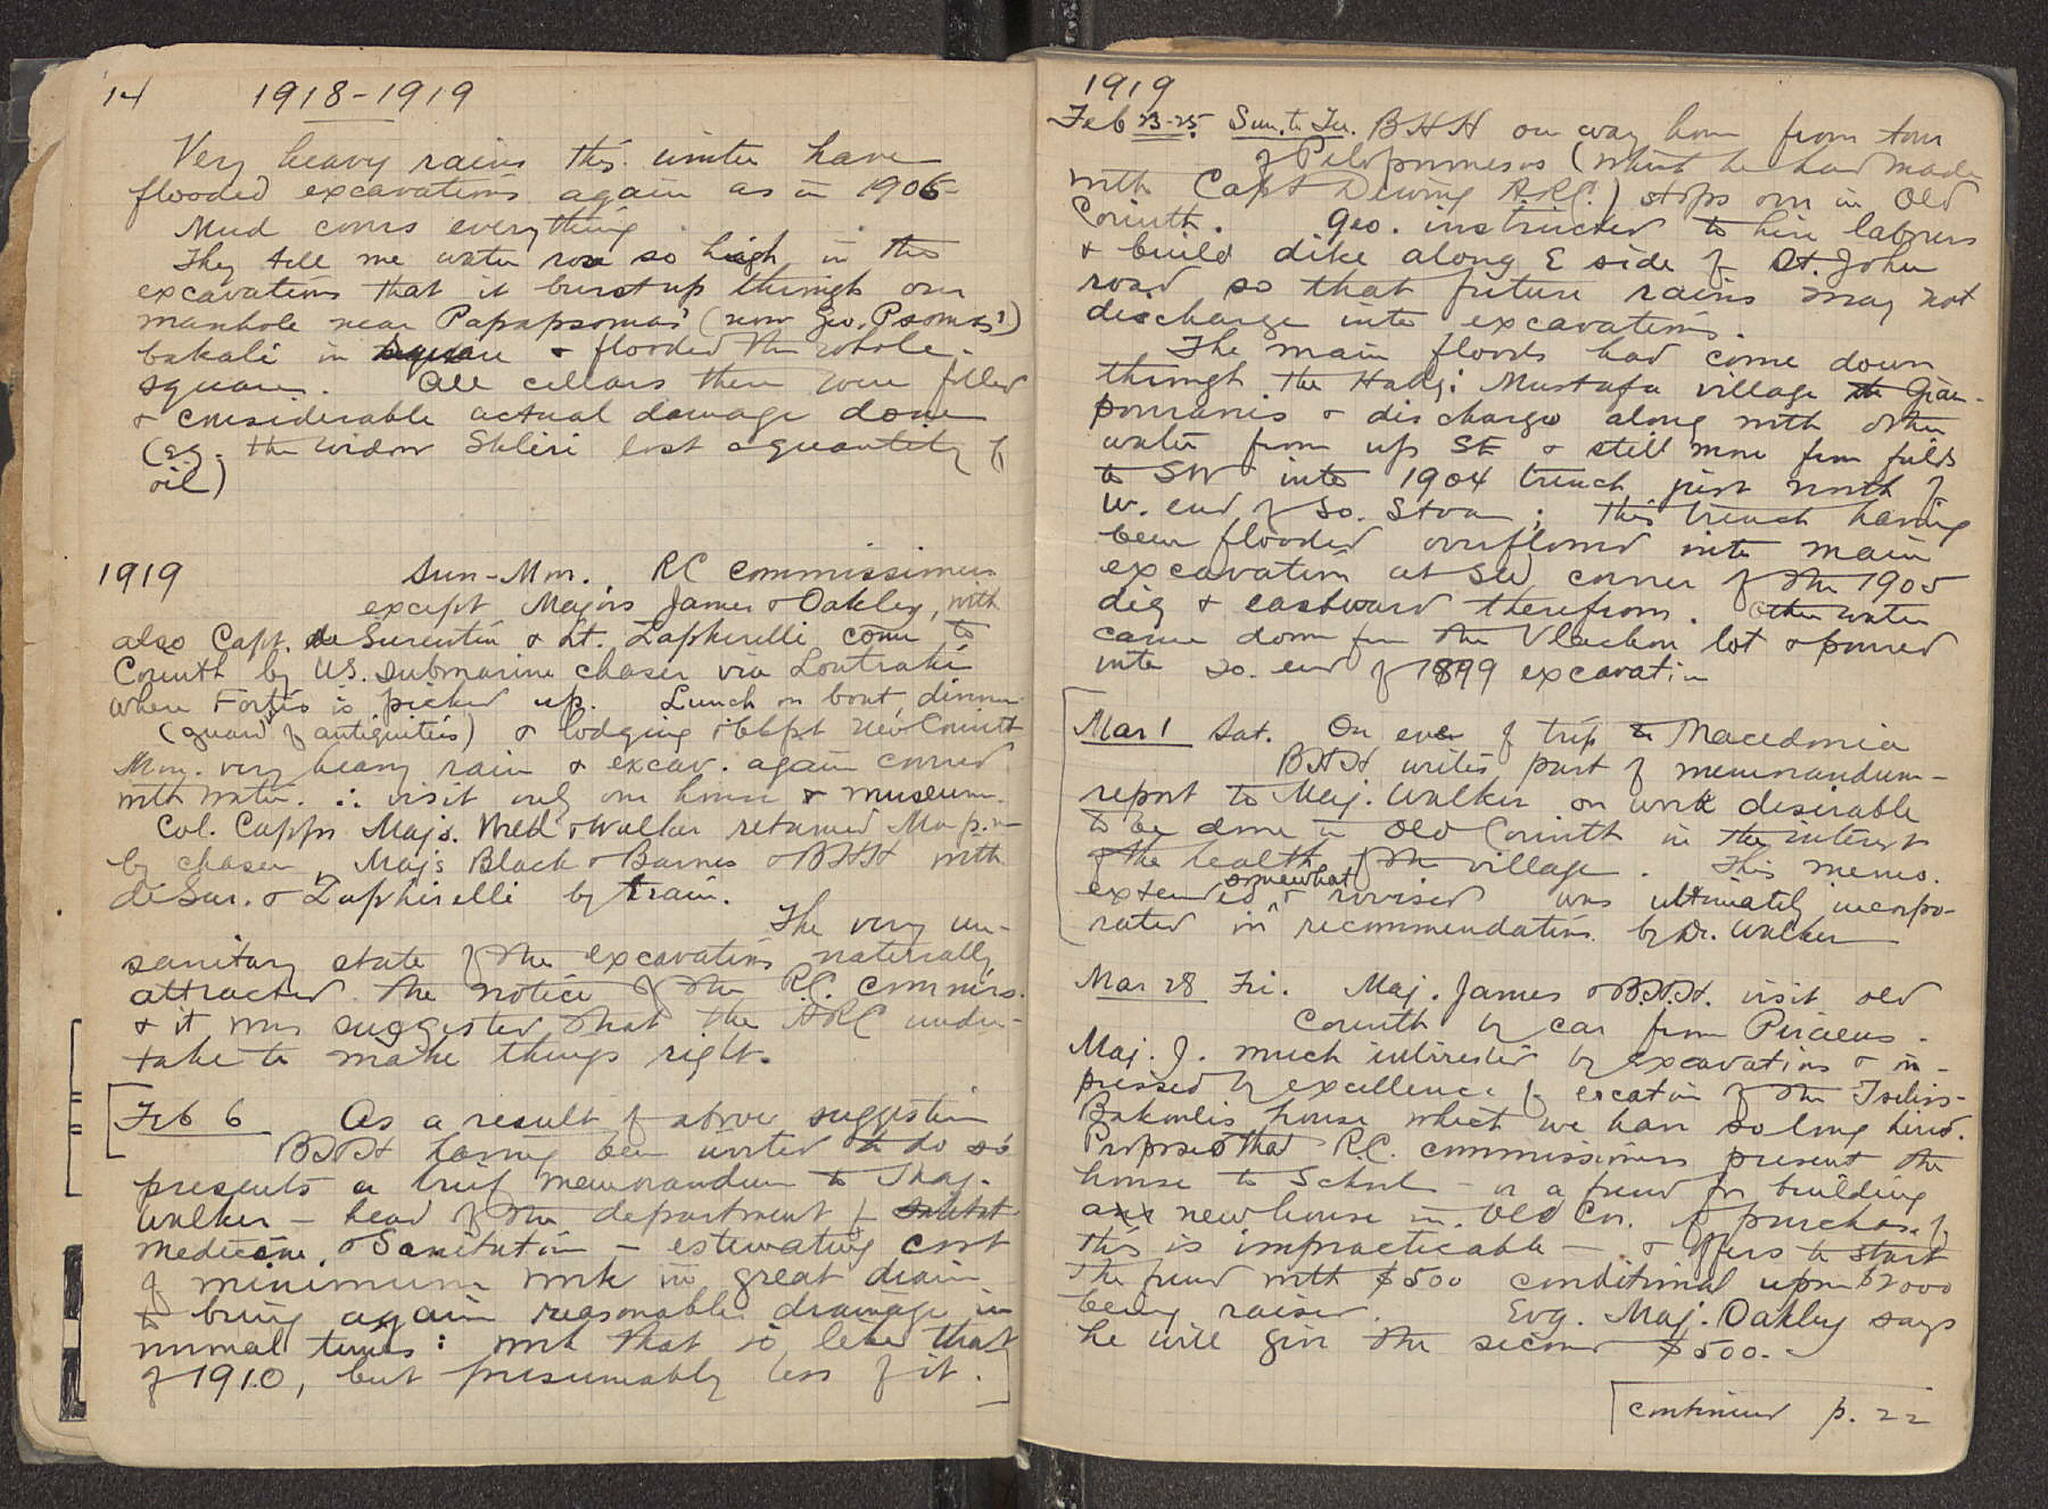 14 1918-1919
Very heavy rains this winter have
flooded excavations again as in 1906
Mud covers everything.
They tell me water rose so high in the
excavations that it burst up through our
manhole near Papapsomas' (now Geo. Psomas')
bakali in square & flooded the whole
square. All cellars there were filled
& considerable actual damage done
(eg. the widow Skliri lost a quantity of
oil)
1919 Sun-Mon. RC commissioners
except Majors James & Oakley, with
also Capt. de Surentin & Lt. Zaphirelli come to
Corinth by US. submarine chaser via Loutraki
where Fortis is picked up. Lunch on boat, dinner
(guard of antiquities) & lodging New Corinth
Mon. very heavy rain & excav. again covered
with water. ∴ visit only our house & museum.
Col. Capps Majs. & Walker returned Mo p.m
by chaser, Majs Black & Barnes & BHH with
deSur. & Zaphirelli by train.
The very un-
sanitary state of the excavations naturally
attracted the notice of the R.C. commrs.
& it was suggested that the ARC under-
take to make things right.
Feb 6 As a result of above suggestion
BHH having been invited to do so
presents a brief memorandum to Maj.
Walker – head of the department of
medicine & Sanitation – estimating cost
of minimum work in great drain
to bring again reasonable drainage in
normal times: work that is like that
of 1910, but presumably less of it.
1919
Feb 23-25. Sun. to Tu. BHH on way home from tour
of Peloponnesos (which he had made
with Capt Dewing A.R.C.) stops over in Old
Corinth. Geo. instructed to hire laborers
& build dike along E side of St. John
road so that future rains may not
discharge into excavations.
The main floods had come down
through the Hadji Mustafa village
& discharge along with other
water from up SE & still more from fields
to SW into 1904 trench just north of
W. end of So. Stoa; this trench having
been flooded overflowed into main
excavation at SW corner of the 1905
dig & eastward therefrom. Other water
came down from the Vlachou lot & poured
into so. end of 1899 excavation
Mar 1 Sat. On eve of trip to Macedonia
BHH writes part of memorandum-
report to Maj. Walker on work desirable
to be done in Old Corinth in the interest
of the health of the village. This memo.
extended somewhat & revised was ultimately incorpo-
rated in recommendations by Dr. Walker
Mar 28 Fri. Maj. James & B.H.H. visit old
Corinth by car from Piraeus.
Maj. J. much interested by excavations & im-
pressed by excellence of location of the Tselios-
Bakoulis house which we have so long hired.
Proposed that R.C. commissioners present the
house to School – or a fund for building
a new house in Old Cor. if purchase of
this is impracticable – & offers to start
the fund with $500 conditional upon $2000
being raised. Evg. Maj. Oakley says
he will give the second $500.-
continued p. 22